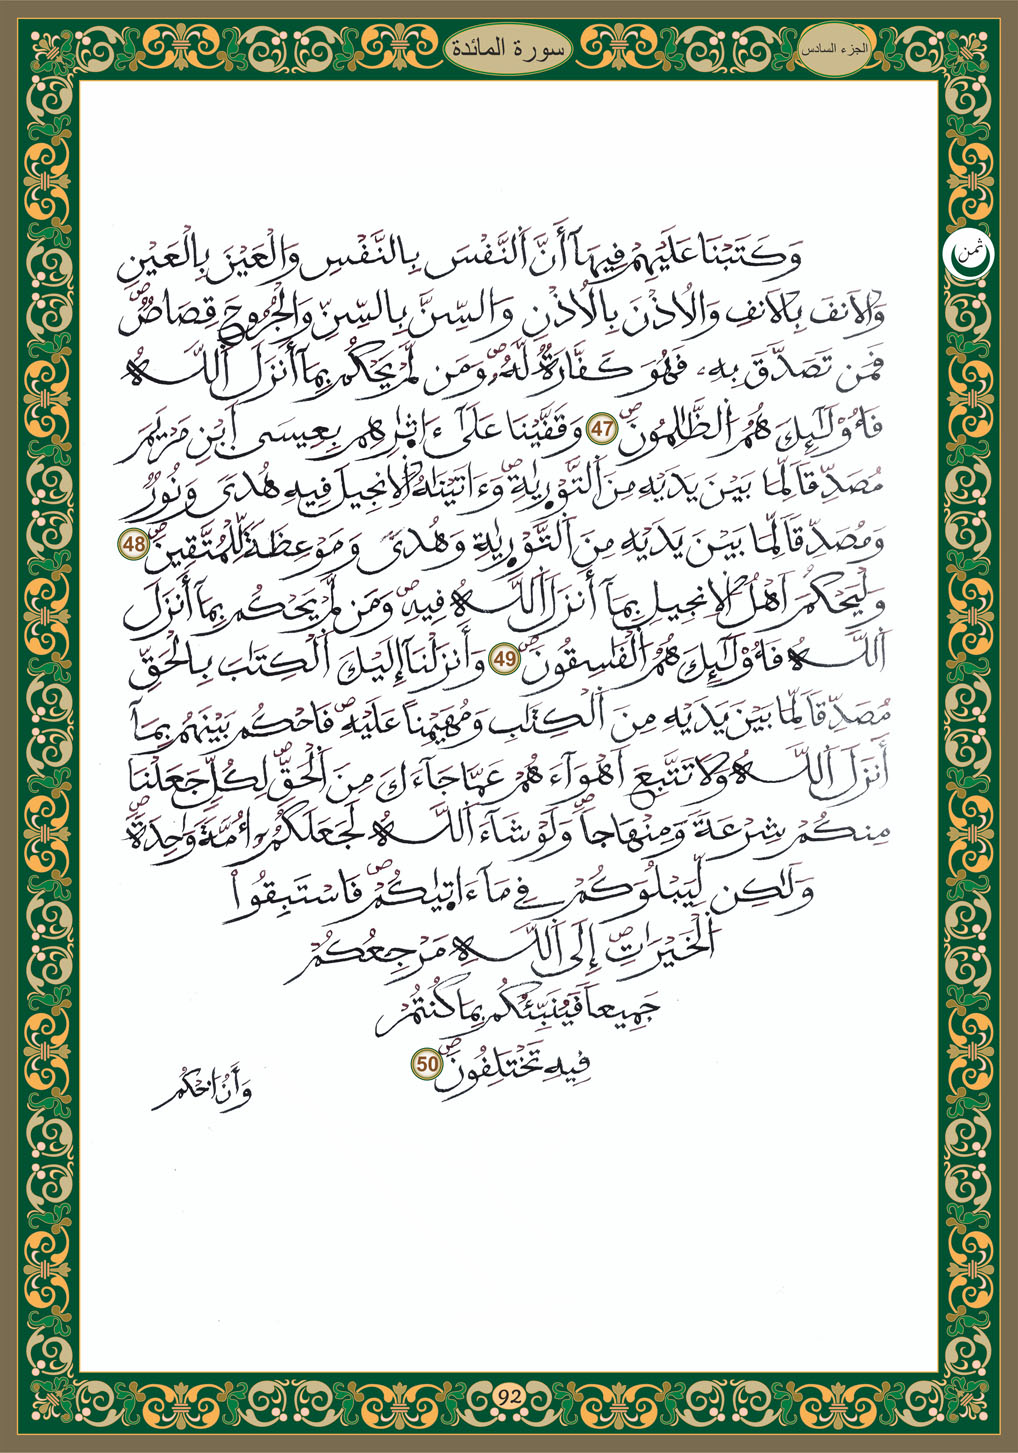 الجزء السادس
سورة المائدة
ثمن
وَكَتَبْنَا عَلَيْهِمْ فِيهَآ أَنَّ اَلنَّفْسَ بِالنَّفْسِ وَالْعَيْنَ بِالْعَيْنِ
وَالَانفَ بِالَانفِ وَالُاذْنَ بِالُاذْنِ وَالسِّنَّ بِالسِّنِّ وَالْجُرُوحَ قِصَاصٌ ص
فَمَن تَصَدَّقَ بِهِۦ فَهُوَ كَفَّارَةٌ لَّهُۥ ص وَمَن لَّمْ يَحْكُم بِمَآ أَنزَلَ اَللَّهُ
فَأُوْلَٰٓئِكَ هُمُ اُلظَّٰلِمُونَ ص 47 وَقَفَّيْنَا عَلَىٰٓ ءَاثٰ۪رِهِم بِعِيسَى اَبْنِ مَرْيَمَ
مُصَدِّقاً لِّمَا بَيْنَ يَدَيْهِ مِنَ اَلتَّوْر۪يٰةِ ص وَءَاتَيْنَٰهُ اُلِانجِيلَ فِيهِ هُدىً وَنُورٌ
وَمُصَدِّقاً لِّمَا بَيْنَ يَدَيْهِ مِنَ اَلتَّوْر۪يٰةِ وَهُدىً وَمَوْعِظَةً لِّلْمُتَّقِينَ ص 48
وَلْيَحْكُمَ اَهْلُ اُلِانجِيلِ بِمَآ أَنزَلَ اَللَّهُ فِيهِ ص وَمَن لَّمْ يَحْكُم بِمَآ أَنزَلَ
اَللَّهُ فَأُوْلَٰٓئِكَ هُمُ اُلْفَٰسِقُونَ ص 49 وَأَنزَلْنَآ إِلَيْكَ اَلْكِتَٰبَ بِالْحَقِّ
مُصَدِّقاً لِّمَا بَيْنَ يَدَيْهِ مِنَ اَلْكِتَٰبِ وَمُهَيْمِناً عَلَيْهِ ص فَاحْكُم بَيْنَهُم بِمَآ
أَنزَلَ اَللَّهُ وَلَا تَتَّبِعَ اَهْوَآءَهُمْ عَمَّا جَآءَكَ مِنَ اَلْحَقِّ ص لِكُلٍّ جَعَلْنَا
مِنكُمْ شِرْعَةً وَمِنْهَاجاً ص وَلَوْ شَآءَ اَللَّهُ لَجَعَلَكُمُۥٓ أُمَّةً وَٰحِدَةً ص
وَلَٰكِن لِّيَبْلُوَكُمْ فِي مَآ ءَات۪يٰكُمْ ص فَاسْتَبِقُواْ
اُلْخَيْرَٰتِ ص إِلَى اَللَّهِ مَرْجِعُكُمْ
جَمِيعاً فَيُنَبِّئُكُم بِمَا كُنتُمْ
فِيهِ تَخْتَلِفُونَ ص 50
وَأَنُ اُحْكُم
92